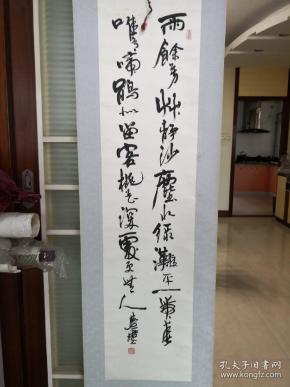 雨餘芳艸靜沙塵水緑灘平一帶春
唯有啼鵑似留客桃花深處更無人
孔夫子旧书网